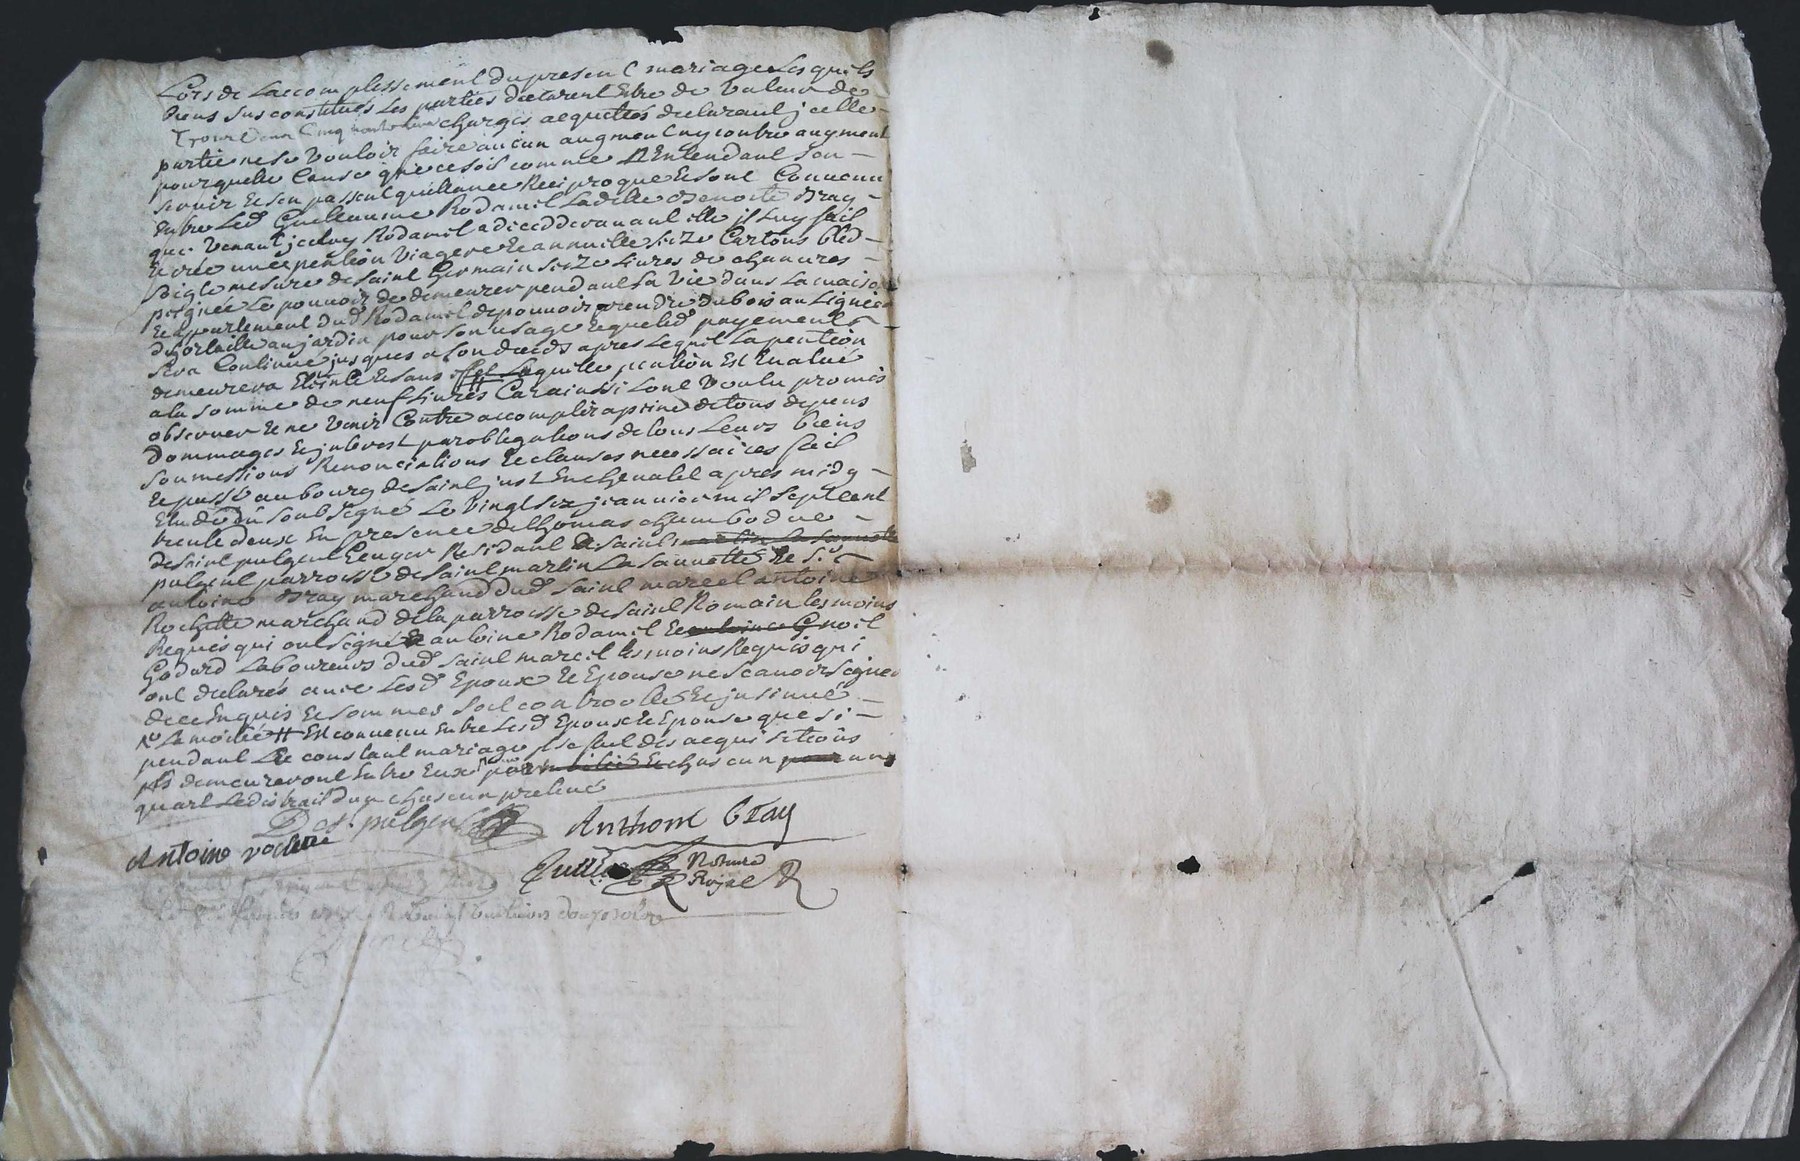 Lors de Laccomplissement du present mariage Lesquels
biens sus constitués Les parties declarent Estre de valeur de
Trois Cens Cinquante livres charges acquitées declarant jcelle
partie ne se vouloir faire aucun augment ny contre augment
pour quelle Cause que ce soit comme N Entendant sen
servir Et sen passent quittance Reciproque Et sont Convenu
Entre Led Guillaume Rodamel Ladite Benoite Bray
que venant jceluy Rodamel a deceder avant elle il Luy fait
Et crée une pention viagere Et annuelle seize Cartons bled
seigle mesure de saint Germain seize Livres de chanvres
peignée Le pouvoir de demeurer pendant sa vie dans La maison
Et apartement dud Rodamel de pouvoir prendre du bois au Lignier
dhortaille au jardin pour son usage Et que led payement
sera Continué jusques a son deceds apres Lequel La pention
demeurera Eteinte Et sans effet Laquelle pention Est Evalué
a la somme de neuf Livres Car ainssi Lont voulu promis
observer Et ne venir Contre accomplir a peine de tous depens
dommages Et jnterest par obligations de tous Leurs biens
soumissions Renonciations Et clauses necessaires fait
Et passé au bourg de saint just En chevalet apres midy
Etude du soubsigné Le vingt six jeanvier mil sept cent
trente deux En presence de thomas chambodue
de saint pulgent Residant a saint
pulgent parroisse de saint martin La sauveté Et Sr
antoine Bray marchand dud saint marcel antoine
Rochette marchand de la parroisse de saint Romain temoins
Requis qui ont signé Et antoine Rodamel Et noel
Godard Laboureurs dud saint marcel temoins Requis qui
ont declarés avec Lesd Epoux Et Epouse ne scavoir signer
de ce Enquis Et sommes soit controollé Et jnsinué
La moitié # Est convenu Entre Lesd Epoux Et Epouse que si
pendant Le constant mariage se fait des acquisitions
demeureront Entre Eux par chascun un
quart
De St pulgent Anthoine Bray
Antoine rochette
Notaire
Royal